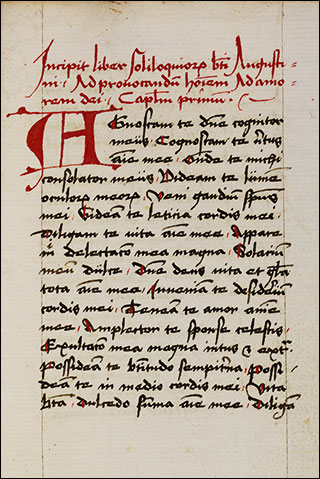 Incipit liber Soliloquiorꝝ bti Augusti=
ni · Ad prouocandũ hõıem Ad amo=
rem dei · Caplm primũ ·
AGnoscam te dñe cognitor
meus · Cognoscam te v̾tus
aĩe mee · Onde te michi
consolator meus · Videam te lumẽ
oculorꝝ meorꝝ · Veni gaudiũ sp̃us
mei · Videã te leticia cordis mei ·
Diligam te uita aĩe mee · Appare
m̃ delectaco mea magna · Solaciũ
meũ dulce · Dñe deus uita et gl̃a
tota aĩe mee · Inueniã te desideriũ
cordis mei · Teneã te amor anĩe
mee · Amplector te sponse celestis
Exultaco mea magna intus ⁊ extᵃ ·
Possideam te btitudo sempit̾na · Possi
deã te in medio cordis mei · Vita
bta · Dulcedo sũma aĩe mee · Diligã